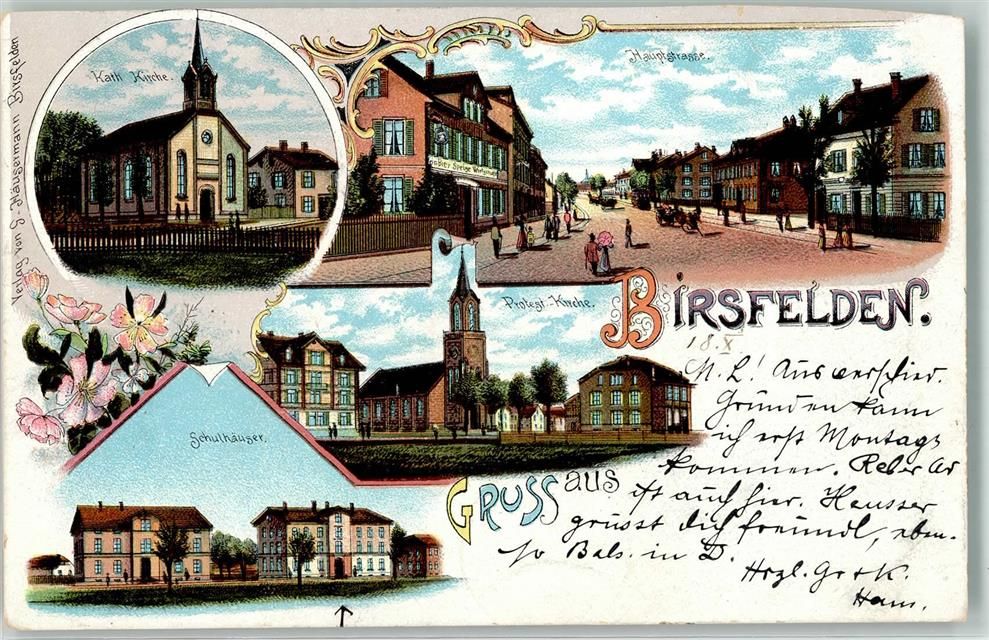 Verlag von G. Häusermann Birsfelden
Kath. Kirche.
Hauptstrasse.
Protest. Kirche.
Schulhäuser.
BIRSFELDEN.
GRUSS aus
18. X
M. L! Aus verschied.
Gründen kann
ich erst Montags
kommen.
ist auch hier. Heusser
grüsst dich freundl, eben-
so Bals. in D.
Hrzl. Gr & K.
Hans.